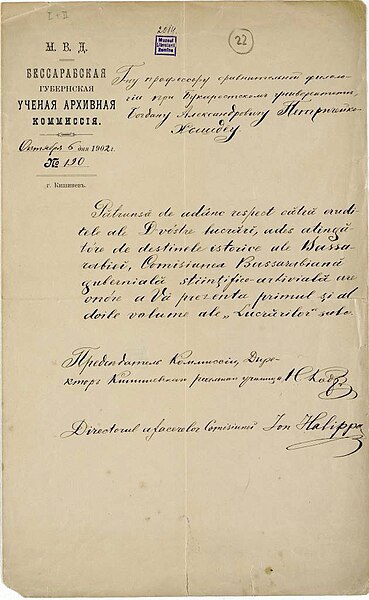 I + II
2014
Muzeul
Literaturii
Române
22
М. В. Д.
БЕССАРАБСКАЯ
ГУБЕРНСКАЯ
УЧЕНАЯ АРХИВНАЯ
КОММИССІЯ.
Октября 6 дня 1902 г.
№ 190
г. Кишиневъ.
Гну профессору сравнительной филоло-
гіи при Букарестскомъ университетѣ,
Богдану Александровичу Петричейко-
Хашдеу
Pătrunsă de adânc respect cătră erudi-
tele ale D-vóstre lucrări, ades atingă-
tóre de destinele istorice ale Bassa-
rabiei, Comisiunea Bassarabiană
gubernială sciințifico-arhivială are
onóre a Vă presenta primul și al
doile volume ale „Lucrărilor" sale.
Предсѣдатель Коммиссіи, Дире-
кторъ Кишиневскаго реальнаго училища,
Directorul afacerelor Comisiunii Ion Halippa